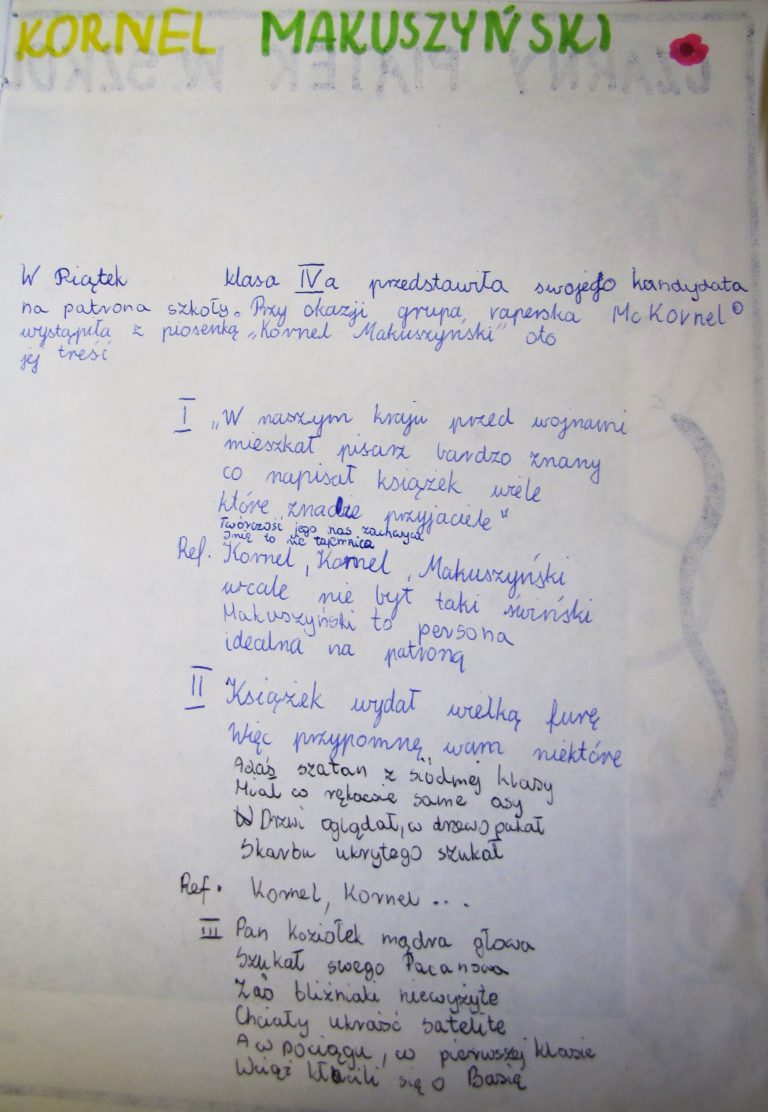 KORNEL MAKUSZYŃSKI
CZARNY PIĄTEK W SZKOL
W Piątek klasa IVa przedstawiła swojego kandydata
na patrona szkoły. Przy okazji grupa raperska McKornel
wystąpiła z piosenką „Kornel Makuszyński" oto
jej treść
I „W naszym kraju przed wojnami
mieszkał pisarz bardzo znany
co napisał książek wiele
które znacie przyjaciele"
Twórczość jego nas zachwyca
Imię to nie tajemnica
Ref. Kornel, Kornel, Makuszyński
wcale nie był taki świński
Makuszyński to persona
idealna na patroną
II Książek wydał wielką furę
Więc przypomnę wam niektóre
Adaś szatan z siódmej klasy
Miał w rękawie same asy
W Drzwi oglądał, w drzewo pukał
Skarbu ukrytego szukał
Ref. Kornel, Kornel ...
III Pan Koziołek mądra głowa
Szukał swego Pacanowa
Zaś bliźniaki niewyżyte
Chciały ukraść satelite
A w pociągu, w pierwszej klasie
Wciąż kłócili się o Basię